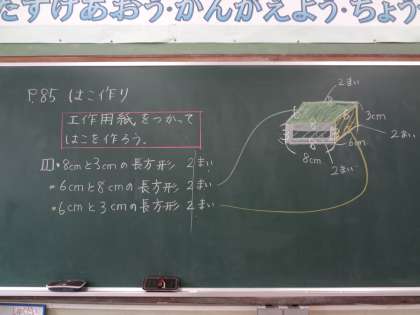 たすけあおう・かんがえよう・ちょう
P.85 はこ作り
工作用紙をつかって
はこを作ろう。
1 •8cmと3cmの長方形 2まい
•6cmと8cmの長方形 2まい
•6cmと3cmの長方形 2まい
2まい
3cm
2まい
6cm
8cm
2まい